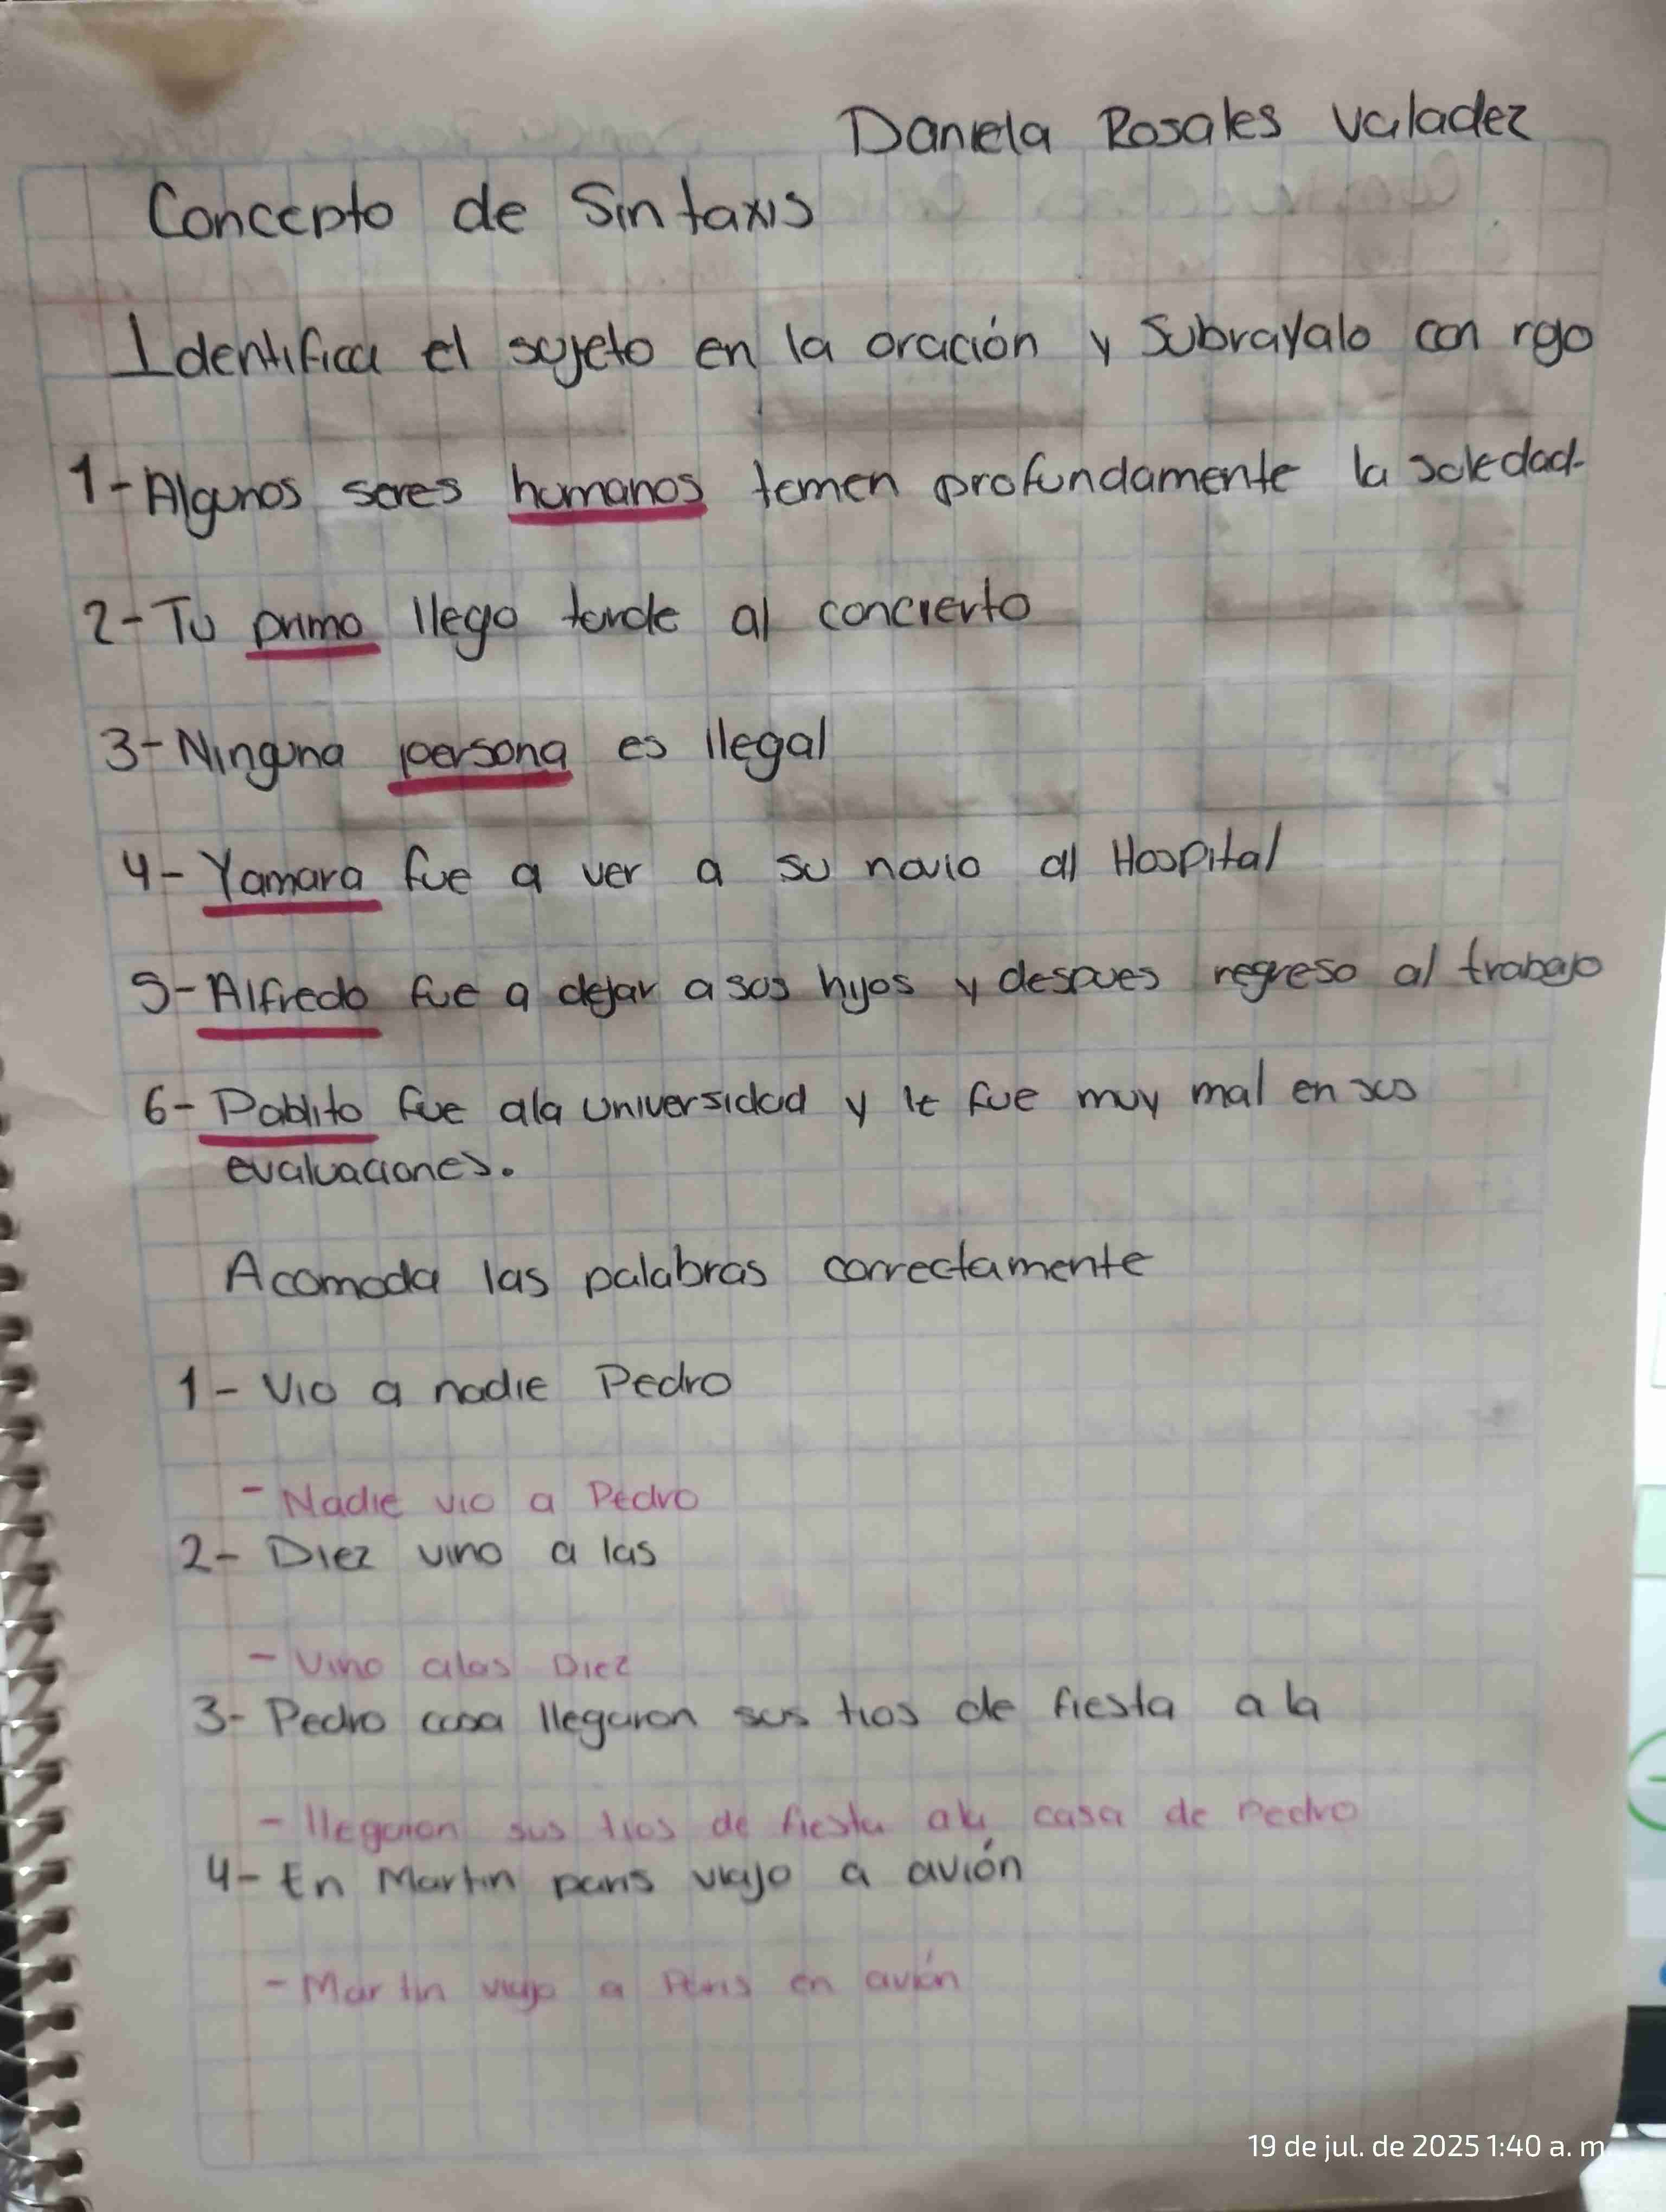 Daniela Rosales Valadez
Concepto de Sintaxis
Identifica el sujeto en la oración y subrayalo con rojo
1- Algunos seres humanos temen profundamente la soledad.
2- Tu primo llego tarde al concierto
3- Ninguna persona es ilegal
4- Yamara fue a ver a su novio al Hospital
5- Alfredo fue a dejar a sus hijos y despues regreso al trabajo
6- Pablito fue ala universidad y le fue muy mal en sus
evaluaciones.
Acomoda las palabras correctamente
1- Vio a nadie Pedro
- Nadie vio a Pedro
2- Diez vino a las
- Vino alas Diez
3- Pedro casa llegaron sus tios de fiesta a la
- llegaron sus tios de fiesta ala casa de Pedro
4- En Martin paris viajo a avión
- Martin viajo a Paris en avión
19 de jul. de 2025 1:40 a. m.